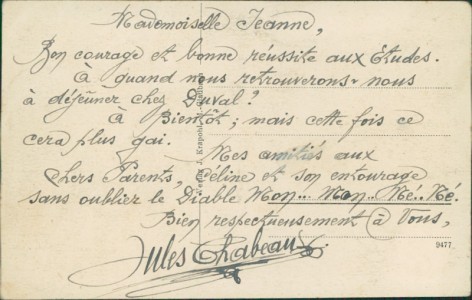 Mademoiselle Jeanne,
Bon courage et bonne réussite aux Études.
à quand nous retrouverons-nous
à déjeûner chez Duval?
à Bientôt; mais cette fois ce
cera plus gai.
Mes amitiés aux
chers Parents, Céline et son entourage
sans oublier le Diable Mon... Mon.. Mé.. Mé.
Bien respectueusement à Vous,
Jules Chabeaux.
9477
J. Krapohl